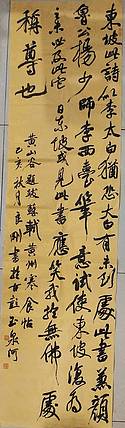 東坡此詩似李太白猶恐太白有未到處此書兼顏
魯公楊少師李西臺筆意試使東坡復為
之未必及此它日東坡或見此書應笑我於無佛處
稱尊也
黄山谷題跋蘇軾黄州寒食帖
己亥秋月良剛書於